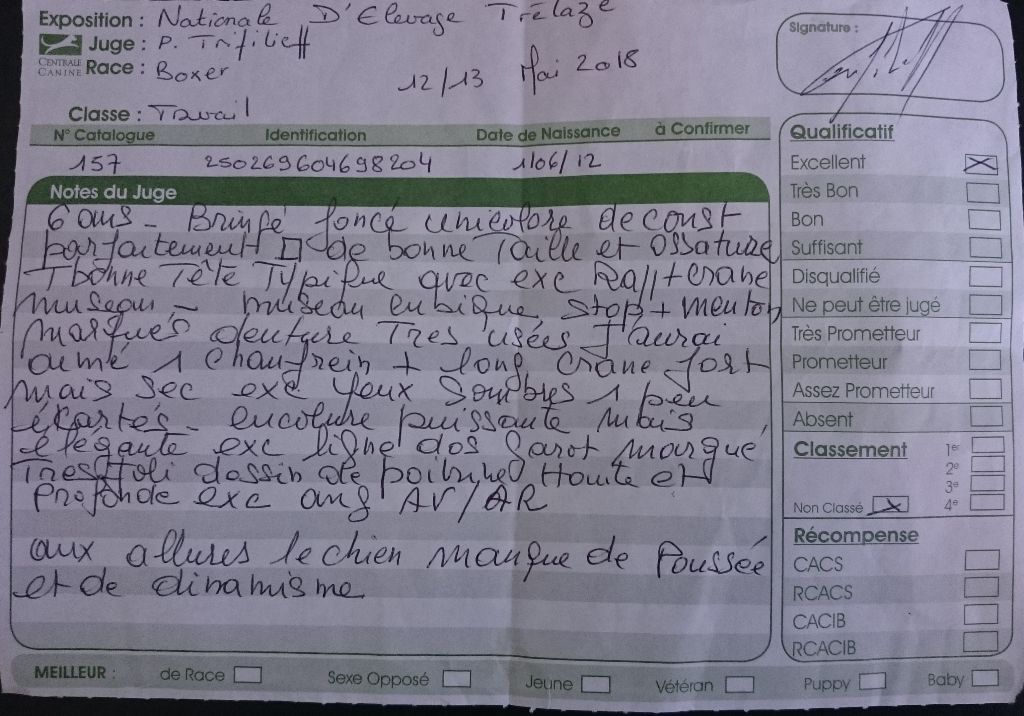 Exposition : Nationale D'Elevage Trélazé
Juge : P. Trifilieff
CENTRALE CANINE
Race : Boxer
12/13 Mai 2018
Classe : Travail
Signature :
N° Catalogue Identification Date de Naissance à Confirmer
157 250269604698204 1/06/12
Notes du Juge
6 ans - Bringé foncé unicolore de const
parfaitement □ de bonne Taille et Ossature
T bonne Tête Typique avec exc Rapp+crane
museau - museau cubique stop + menton
marqués denture Tres usées J'aurai
aimé 1 chanfrein + long crane fort
mais sec exc yeux Sombres 1 peu
écartés - encolure puissante mais
élégante exc ligne dos Garot marqué
Tres Joli dessin de poitrine Haute et
Profonde exc ang AV/AR
aux allures le chien manque de Poussée
et de dinamisme
Qualificatif
Excellent
Très Bon
Bon
Suffisant
Disqualifié
Ne peut être jugé
Très Prometteur
Prometteur
Assez Prometteur
Absent
Classement 1er
2e
3e
Non Classé 4e
Récompense
CACS
RCACS
CACIB
RCACIB
MEILLEUR : de Race Sexe Opposé Jeune Vétéran Puppy Baby